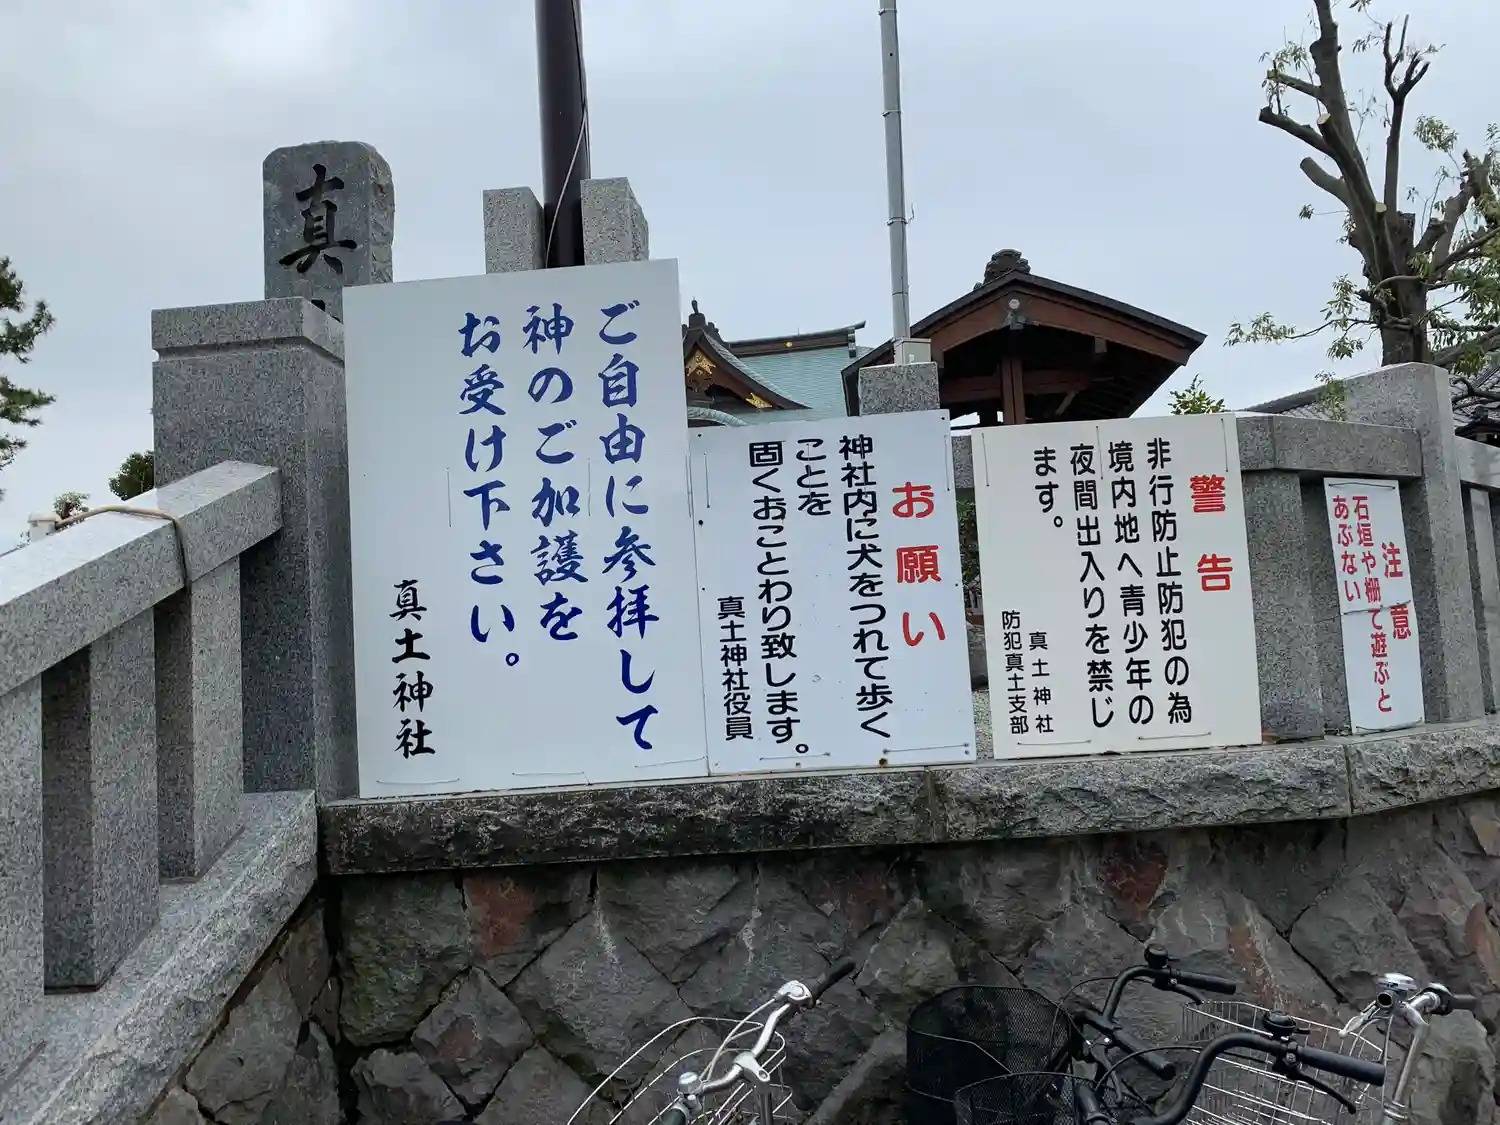 真
ご自由に参拝して
神のご加護を
お受け下さい。
真土神社
お願い
神社内に犬をつれて歩く
ことを
固くおことわり致します。
真土神社役員
警告
非行防止防犯の為
境内地へ青少年の
夜間出入りを禁じ
ます。
真土神社
防犯真土支部
注意
石垣や柵で遊ぶと
あぶない